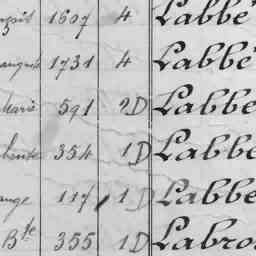 1607 4 Labbé
1731 4 Labbé
Marie 591 2D Labbe
354 1D Labbe
ange 117 1D Labbe
Bte 355 1D Labro